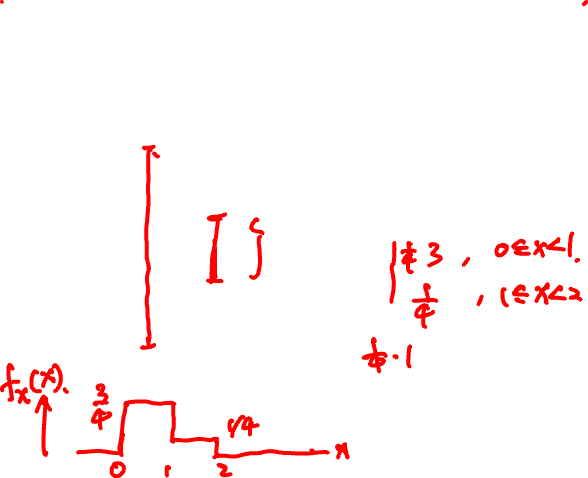 ¼ 3 , 0 ≤ x < 1.
1/4 , 1 ≤ x < 2
¼ · 1
f_x(x).
3/4
1/4
x
0 1 2